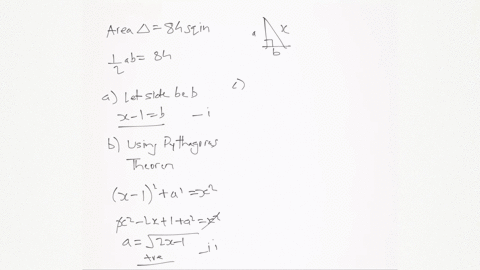 Area △ = 84 sq in
1/2 ab = 84
a) Let side be b
x-1=b —i
b) Using Pythagoras
Theorem
(x-1)² + a² = x²
x² - 2x + 1 + a² = x²
a = √2x-1 —ii
+ve
c)
a
x
b